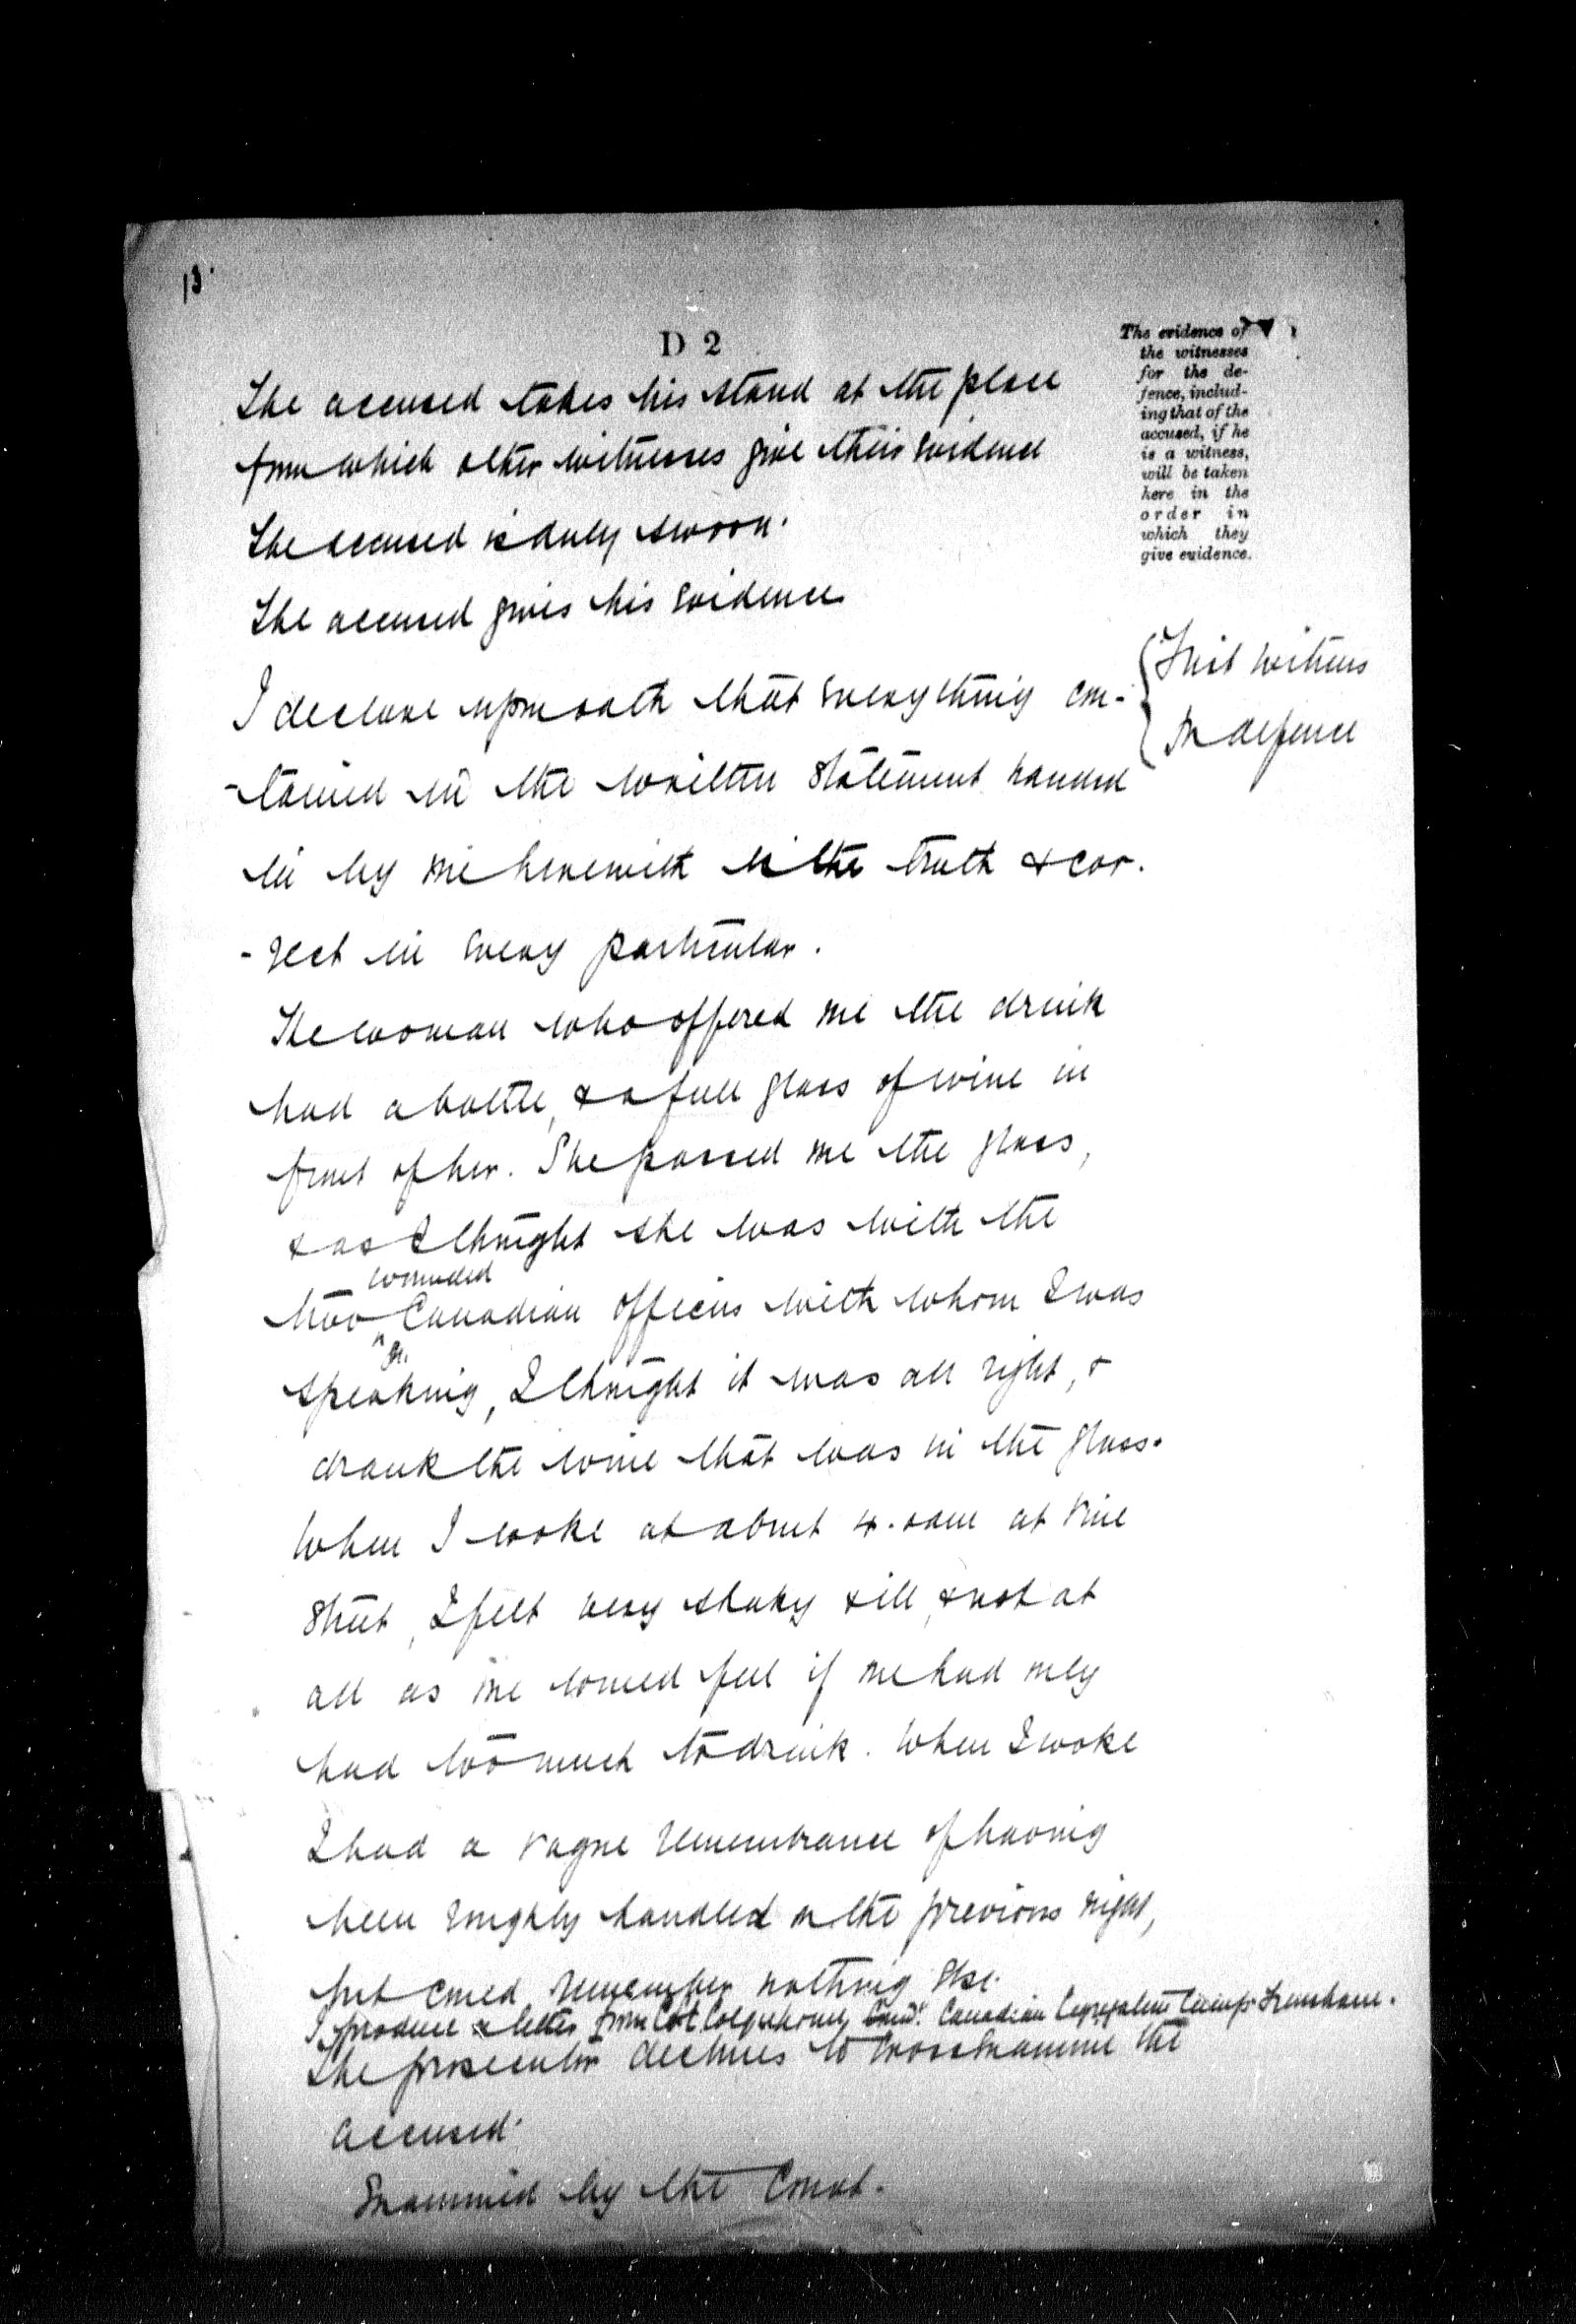 13
D 2
The evidence of
the witnesses
for the de-
fence, includ-
ing that of the
accused, if he
is a witness,
will be taken
here in the
order in
which they
give evidence.
The accused takes his stand at the place
from which other witnesses give their evidence
The accused is duly sworn.
The accused gives his evidence
First witness
in defence
I declare upon oath that everything con-
-tained in the written statement handed
in by me herewith is the truth & cor-
-rect in every particular.
The woman who offered me the drink
had a bottle, & a full glass of wine in
front of her. She passed me the glass,
& as I thought she was with the
wounded
two Canadian officers with whom I was
speaking, I thought it was all right, &
drank the wine that was in the glass.
When I woke at about 4.0am at Vine
Street, I felt very shaky & ill, & not at
all as one would feel if one had only
had too much to drink. When I woke
I had a vague remembrance of having
been roughly handled on the previous night,
but could remember nothing else.
I produce a letter from Colquhoun, Comdt. Canadian Camp
The prosecutor declines to cross examine the
accused.
Examined by the Court.